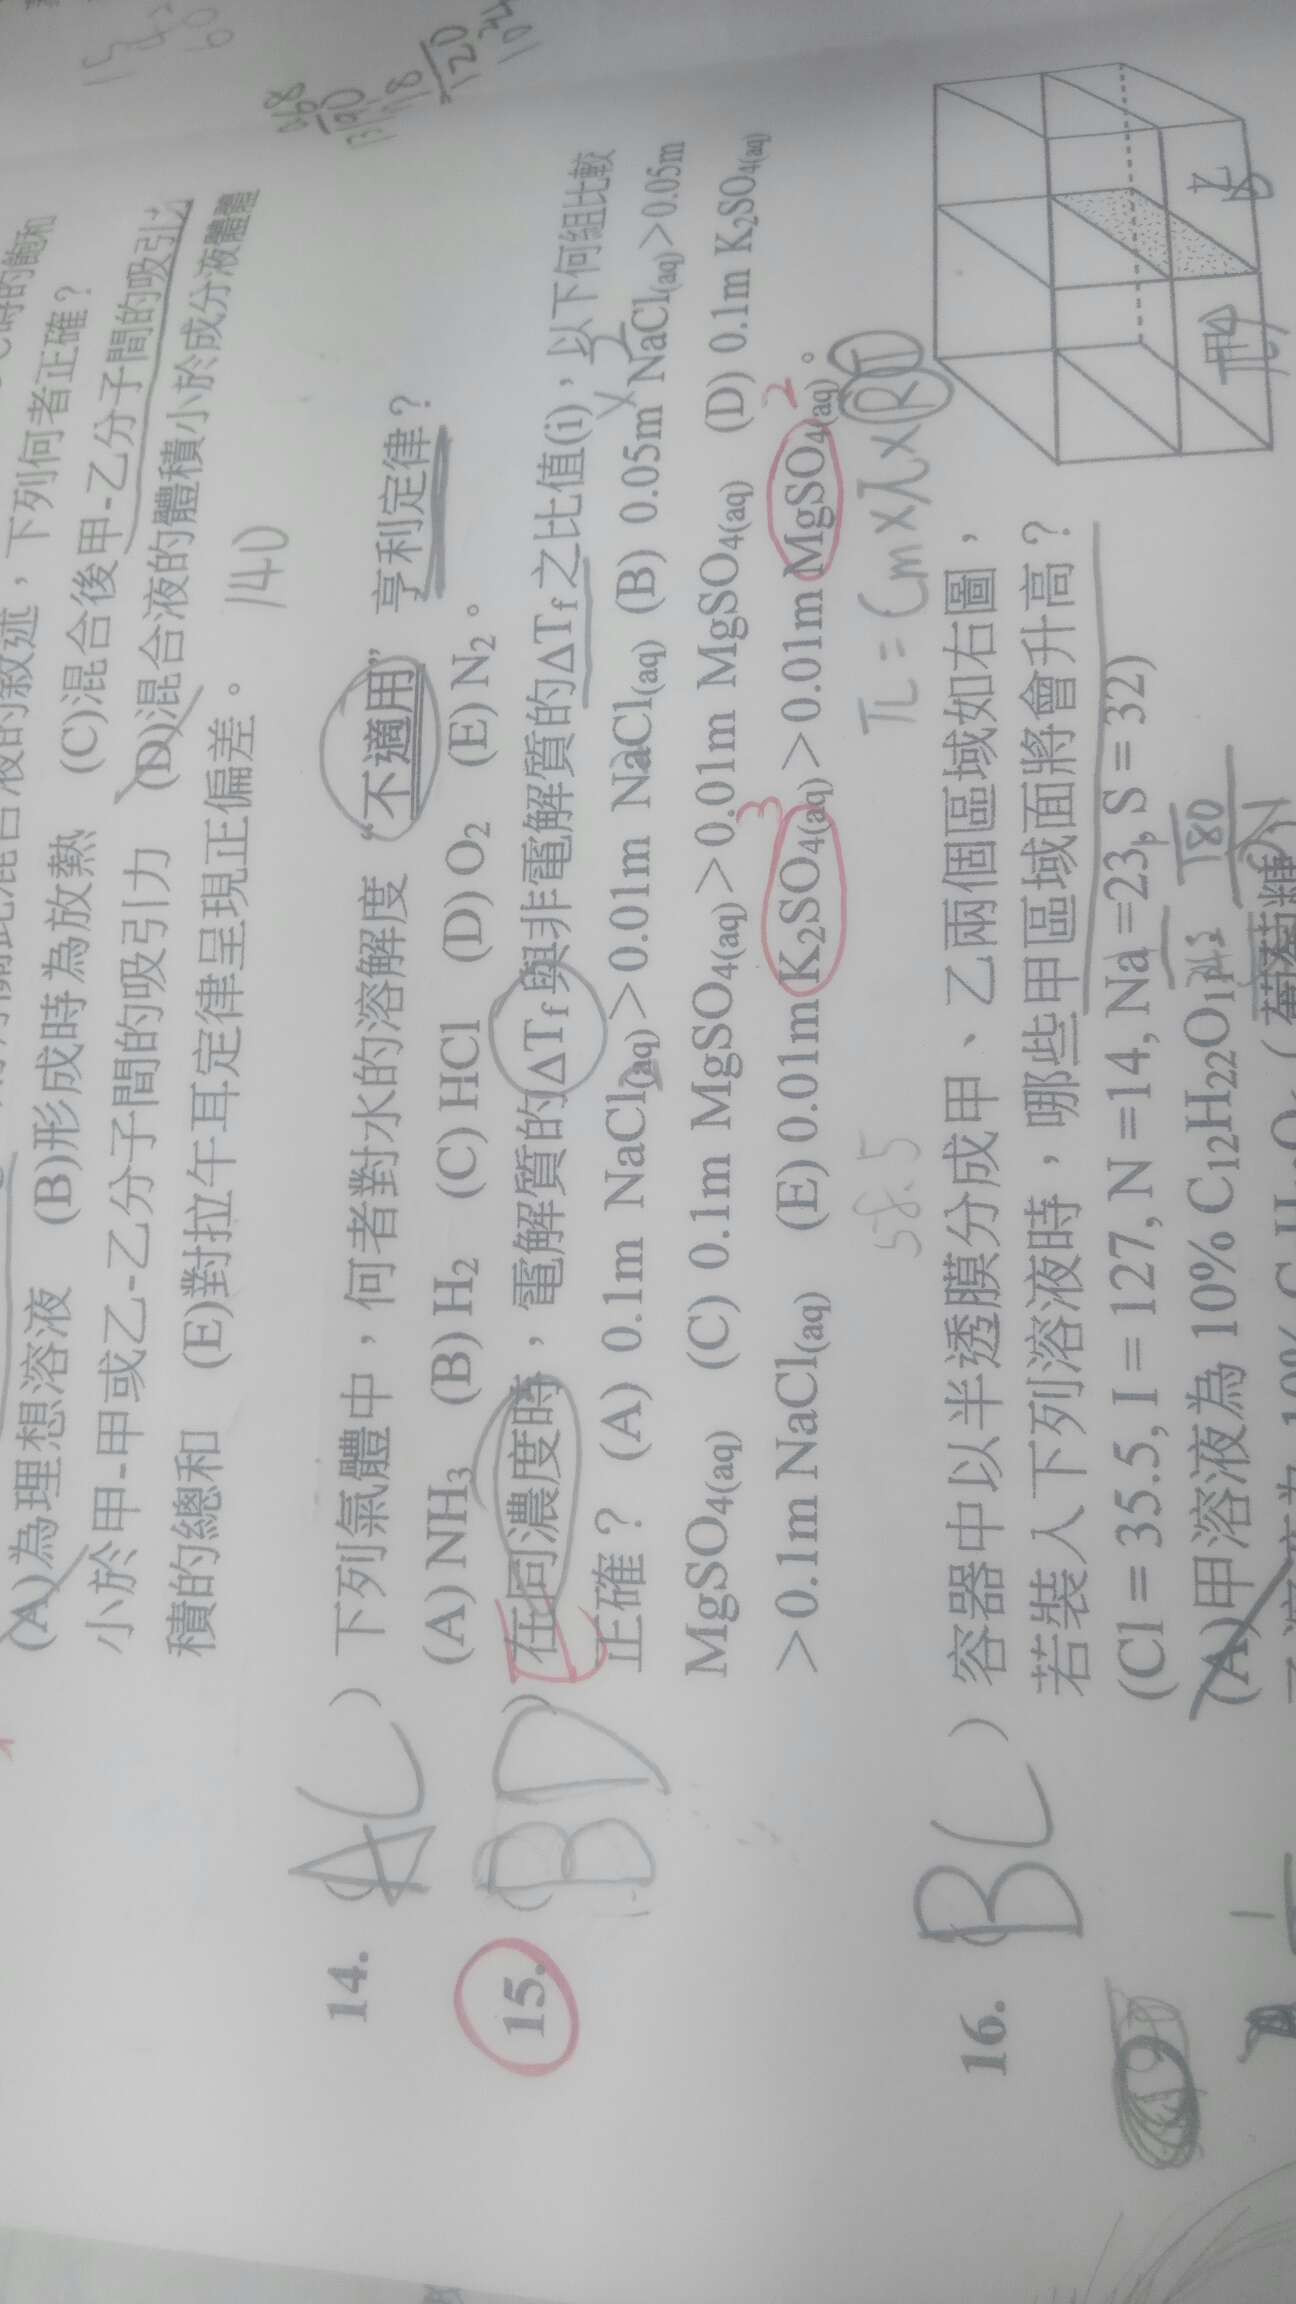 時的飽和
液的敘述，下列何者正確？
(A)為理想溶液 (B)形成時為放熱 (C)混合後甲-乙分子間的吸引
小於甲-甲或乙-乙分子間的吸引力 (D)混合液的體積小於成分液體體
積的總和 (E)對拉午耳定律呈現正偏差。
140
14. (AC) 下列氣體中，何者對水的溶解度“不適用”亨利定律？
(A) NH3 (B) H2 (C) HCl (D) O2 (E) N2。
15. (BD) 在同濃度時，電解質的ΔTf與非電解質的ΔTf之比值(i)，以下何組比較
正確？ (A) 0.1m NaCl(aq)＞0.01m NaCl(aq) (B) 0.05m NaCl(aq)＞0.05m
MgSO4(aq) (C) 0.1m MgSO4(aq)＞0.01m MgSO4(aq) (D) 0.1m K2SO4(aq)
＞0.1m NaCl(aq) (E) 0.01m K2SO4(aq)＞0.01m MgSO4(aq)。
3 2
58.5
π = Cm×i×RT
16. (BC) 容器中以半透膜分成甲、乙兩個區域如右圖，
若裝入下列溶液時，哪些甲區域面將會升高？
(Cl = 35.5, I = 127, N = 14, Na = 23, S = 32)
(A)甲溶液為 10% C12H22O11
180
甲
乙
葡萄糖